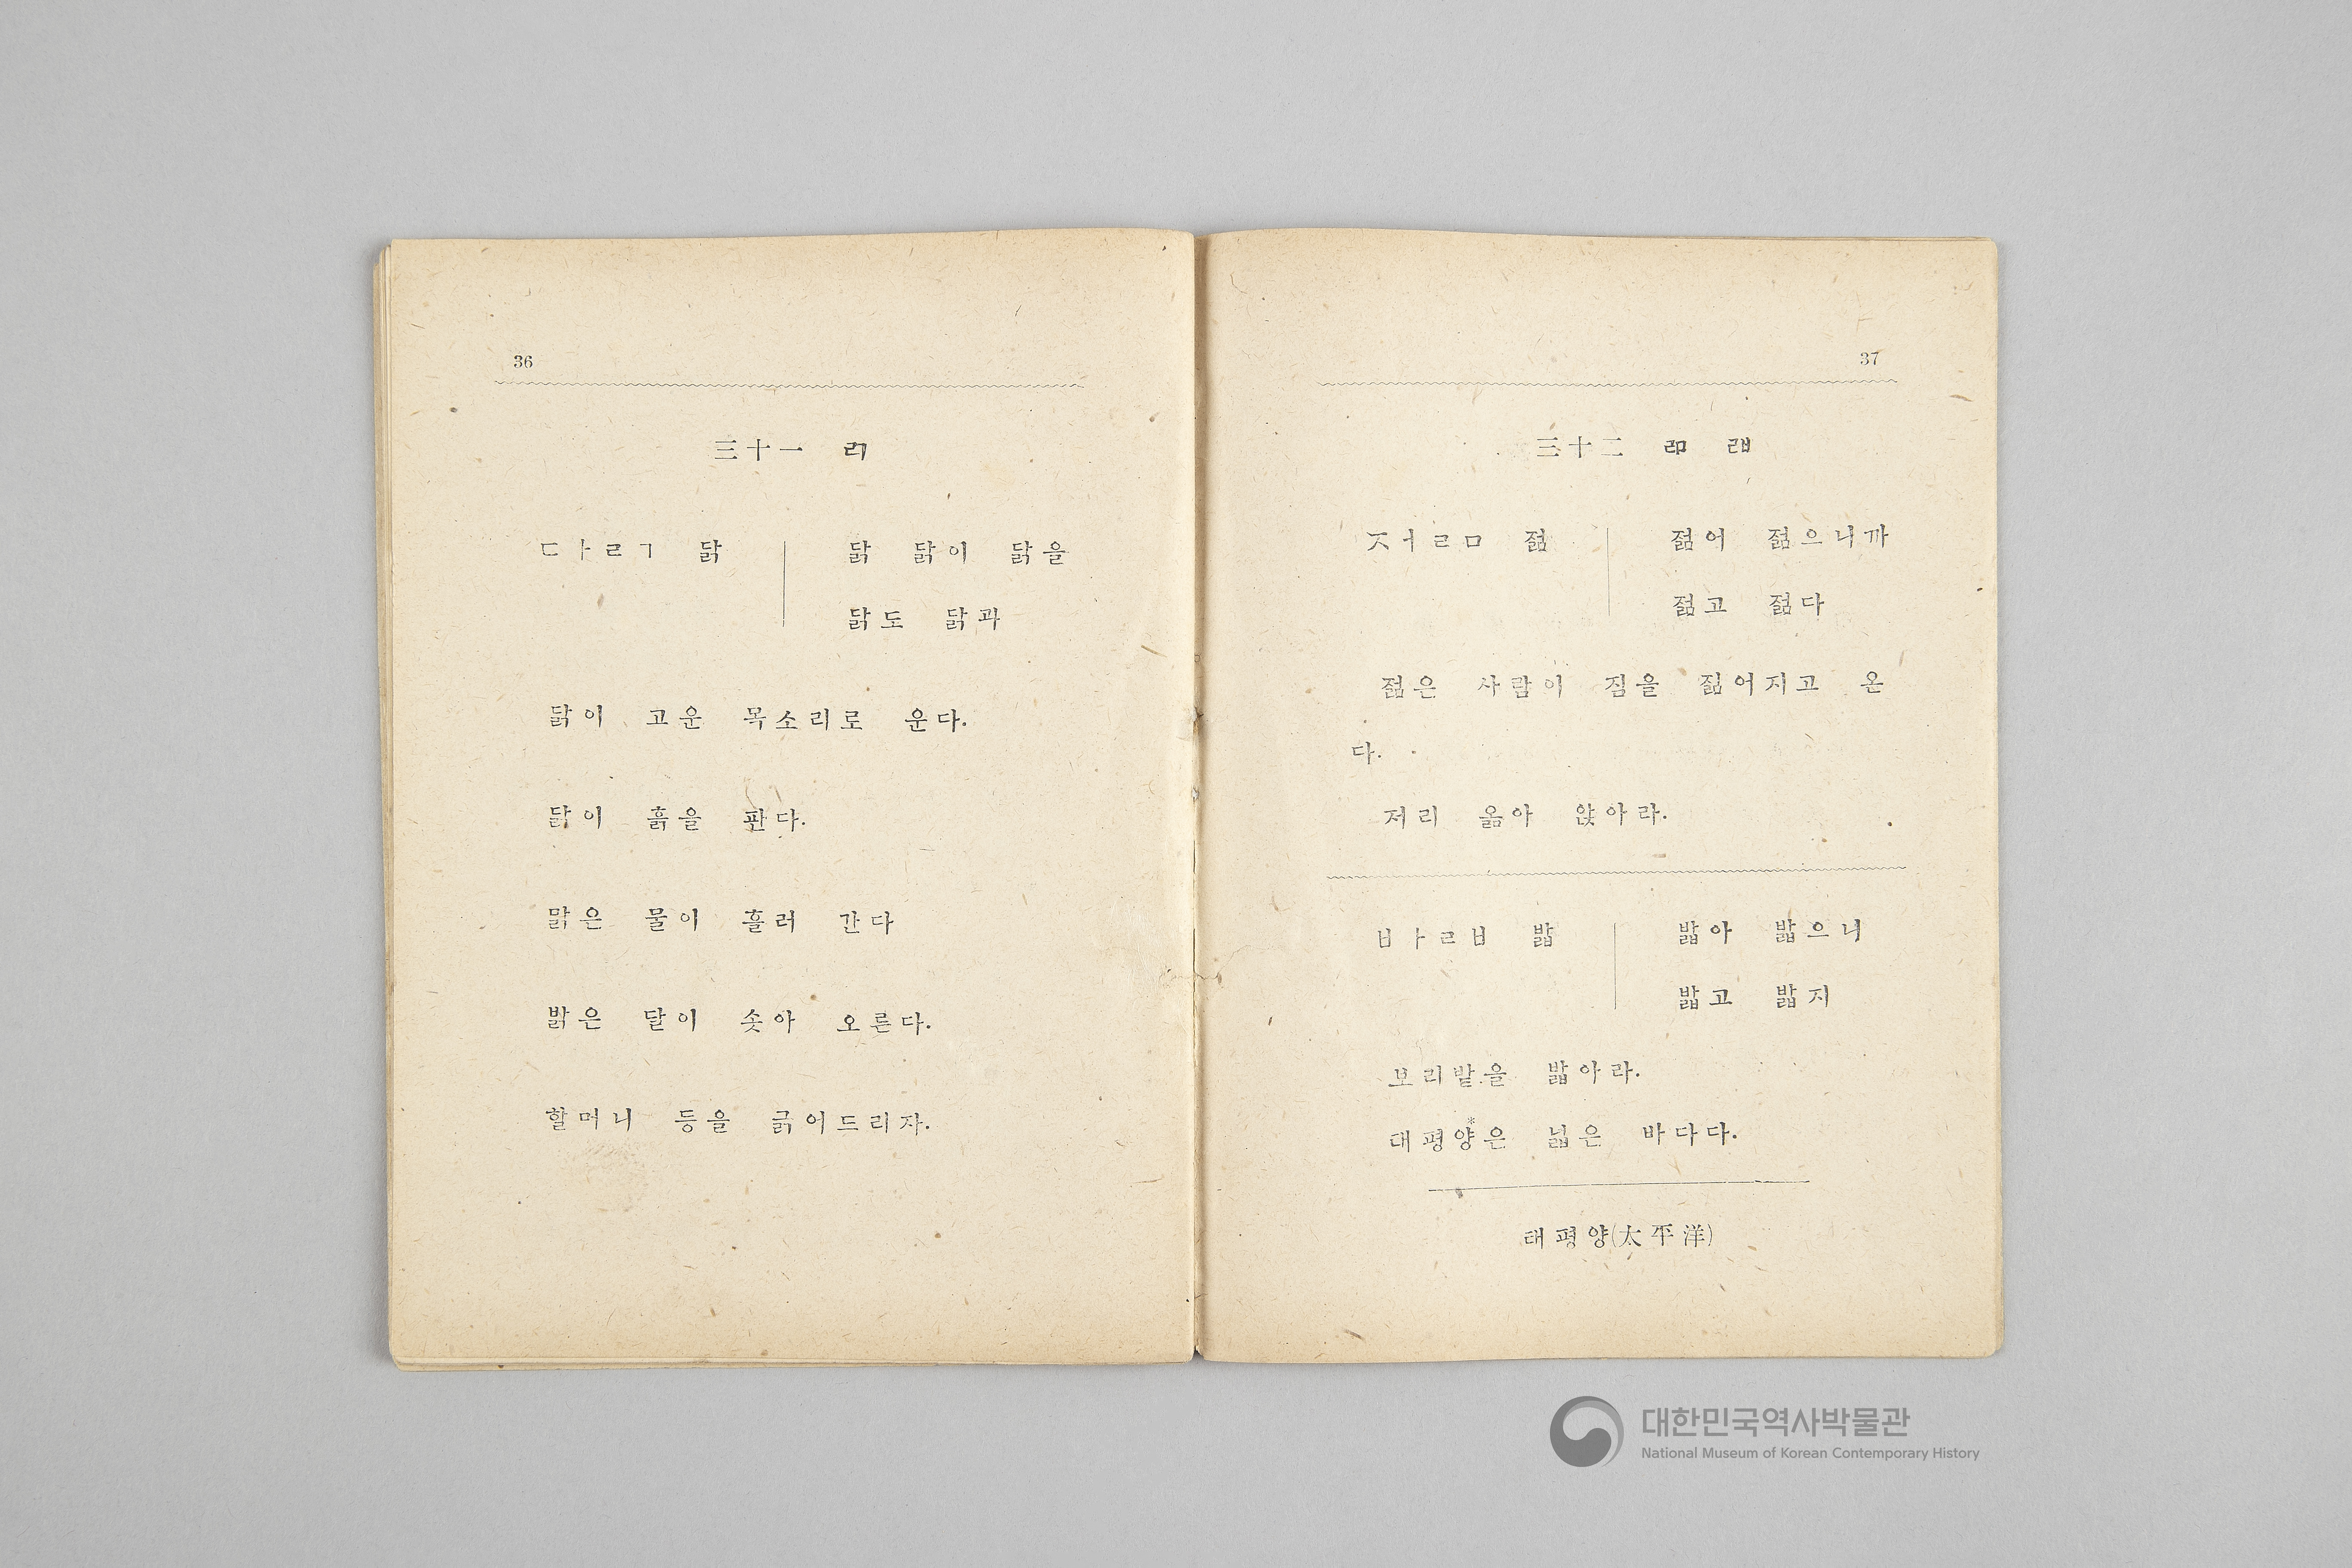 36
三十一 ㄺ
ㄷㅏㄹㄱ 닭 닭 닭이 닭을
닭도 닭과
닭이 고운 목소리로 운다.
닭이 흙을 판다.
맑은 물이 흘러 간다
밝은 달이 솟아 오른다.
할머니 등을 긁어드리자.
37
三十二 ㄻ ㄼ
ㅈㅓㄹㅁ 젊 젊어 젊으니까
젊고 젊다
젊은 사람이 짐을 짊어지고 온
다.
저리 옮아 앉아라.
ㅂㅏㄹㅂ 밟 밟아 밟으니
밟고 밟지
보리밭을 밟아라.
대평양*은 넓은 바다다.
태평양(太平洋)
대한민국역사박물관
National Museum of Korean Contemporary History